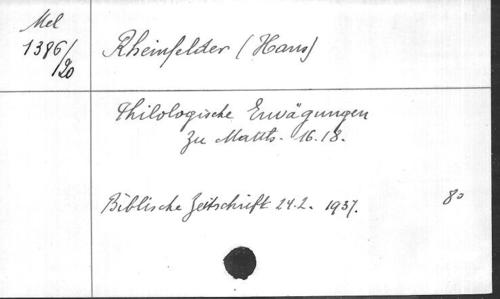 Mel
1386/
120
Rheinfelder (Hans)
Philologische Erwägungen
zu Matth. 16.18.
Biblische Zeitschrift 24.2. 1937.
8o